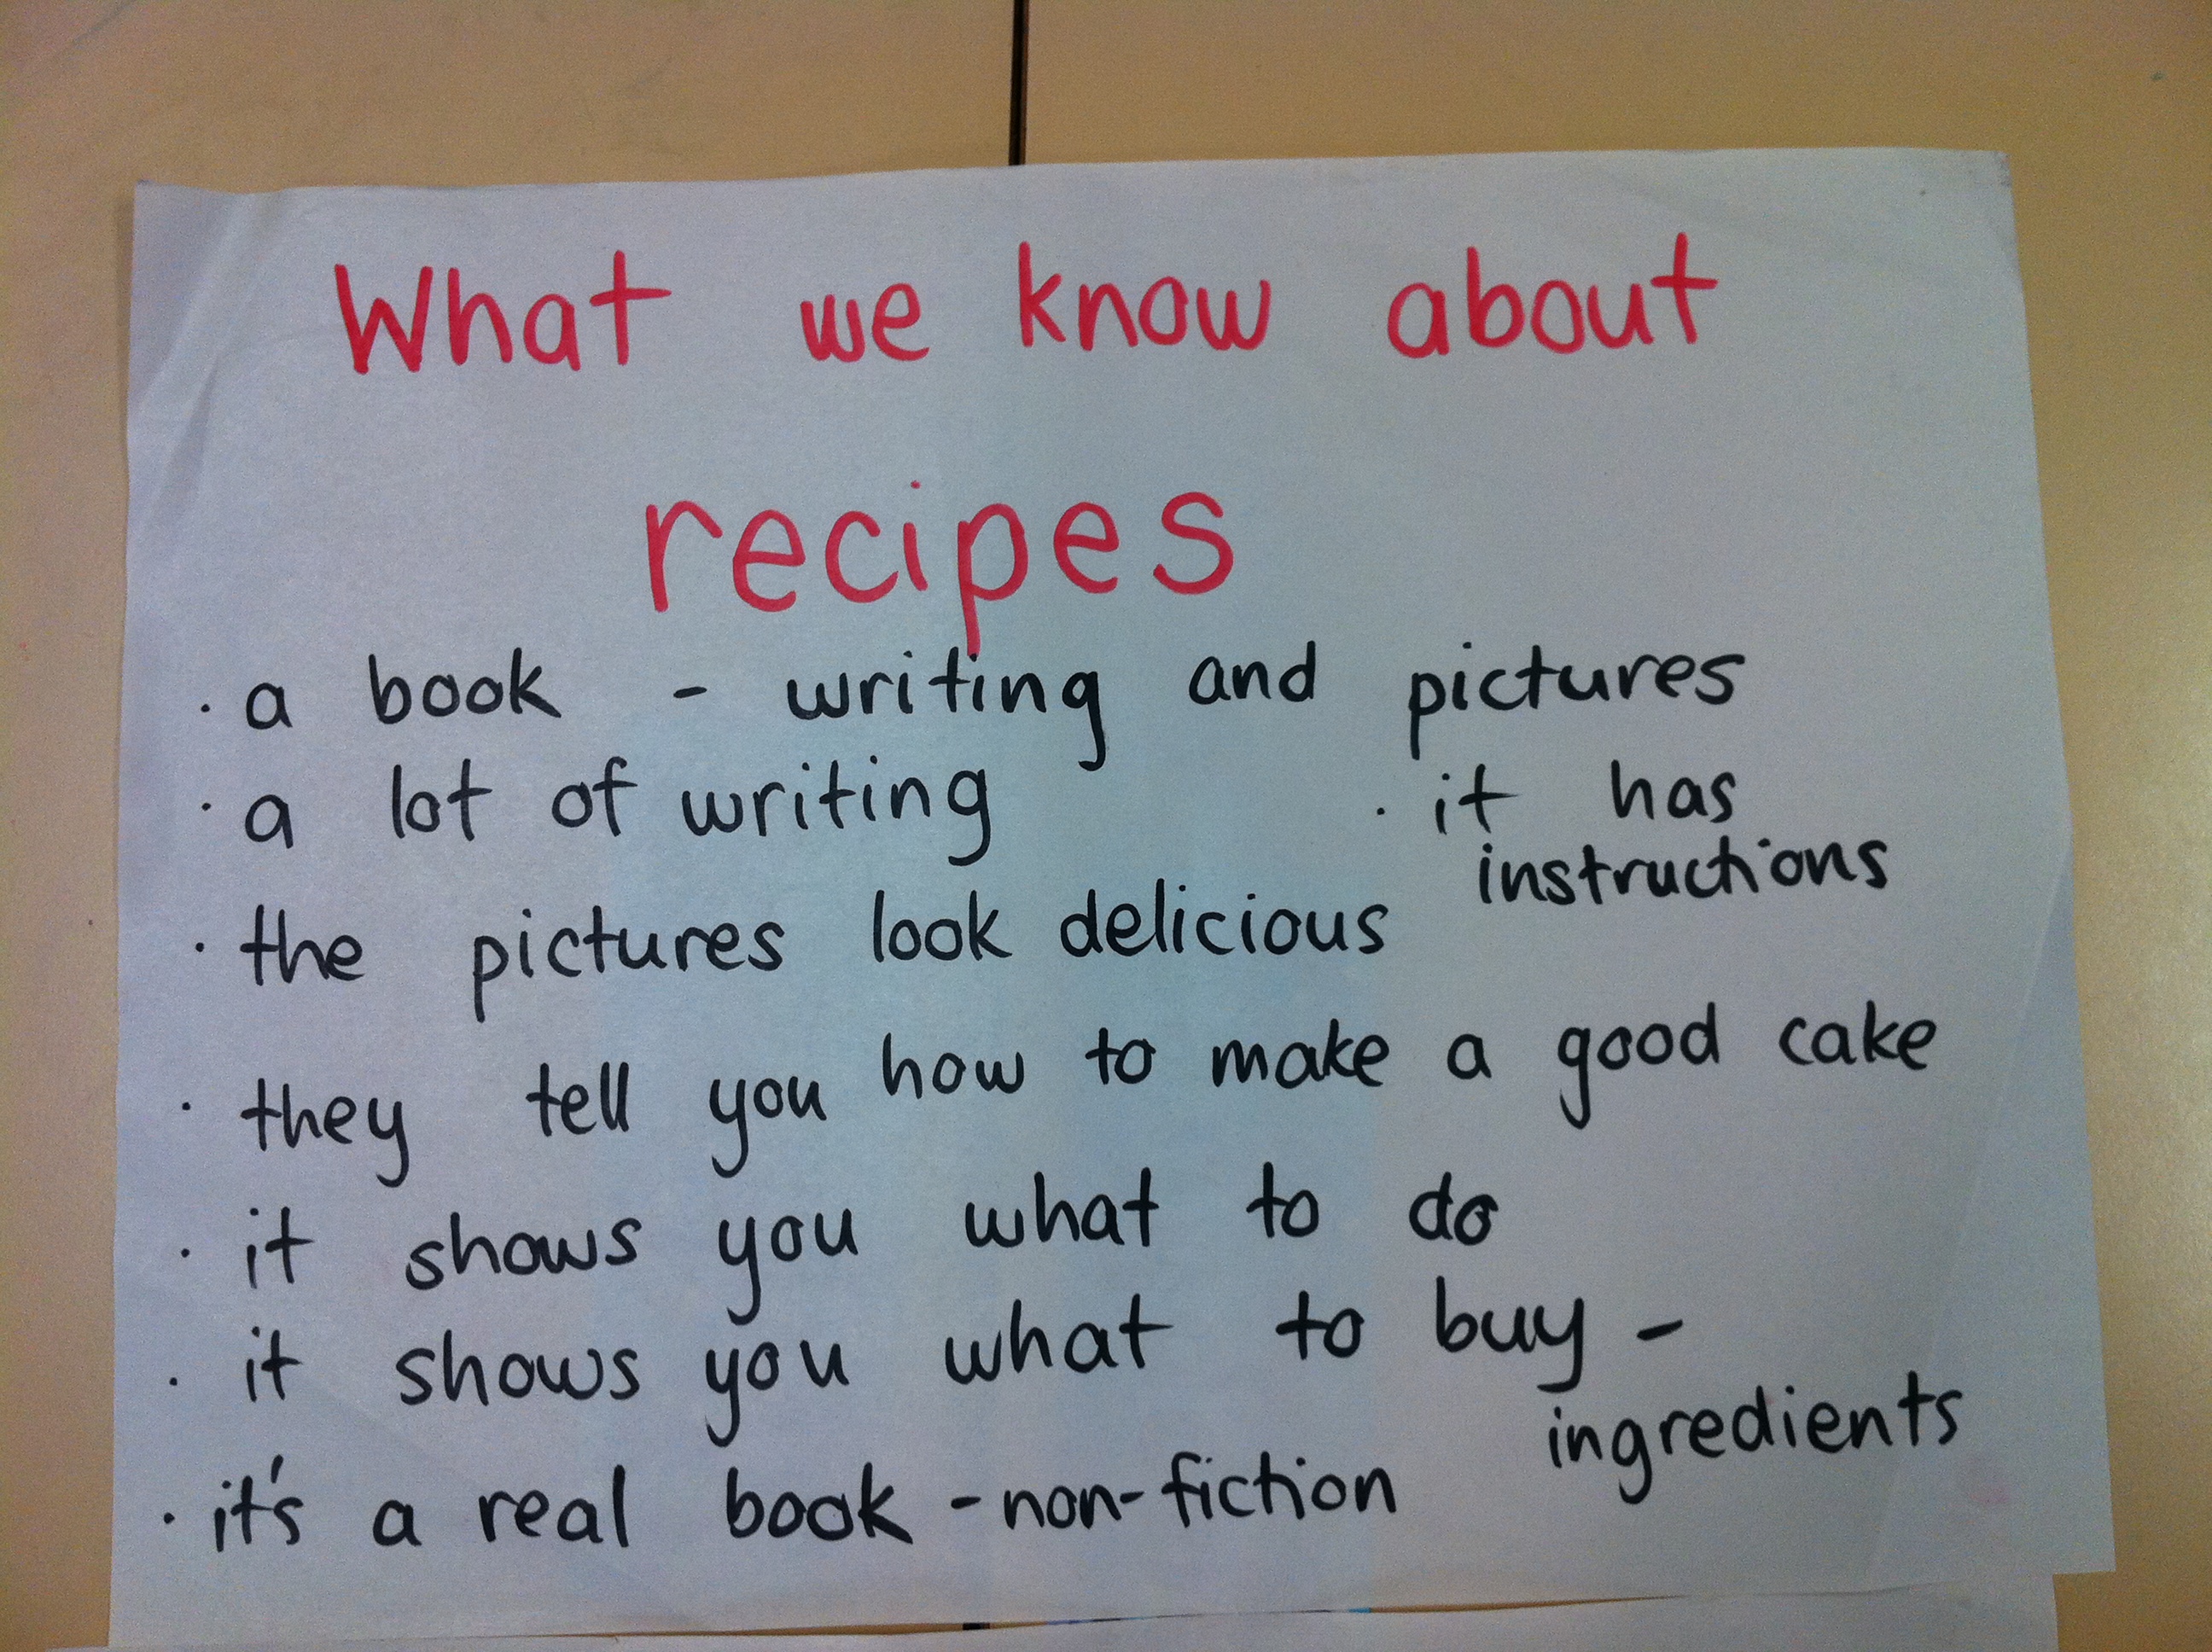 What we know about
recipes
· a book - writing and pictures
· a lot of writing
· it has
instructions
· the pictures look delicious
· they tell you how to make a good cake
· it shows you what to do
· it shows you what to buy -
ingredients
· it's a real book - non-fiction